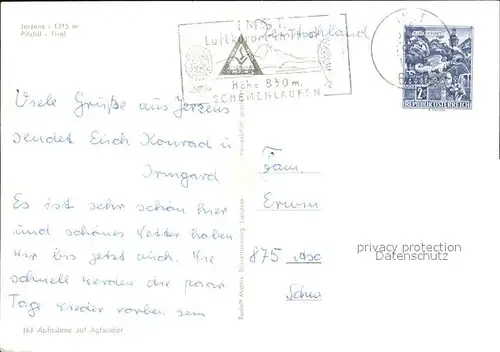 Jerzens - 1315 m
Pitztal - Tirol
IMST
Luftkurort
Höhe 830 m.
SCHEMENLAUFEN
IMST
REPUBLIK ÖSTERREICH
Viele Grüße aus Jerzens
sendet Euch Konrad u
Irmgard
Es ist sehr schön hier
und schönes Wetter haben
wir bis jetzt auch. Wie
schnell werden die paar
Tage wieder vorbei sein
Fam.
Erwin
875
privacy protection
Datenschutz
Rudolf Mathis, Landeck
163 Aufnahme auf Agfacolor